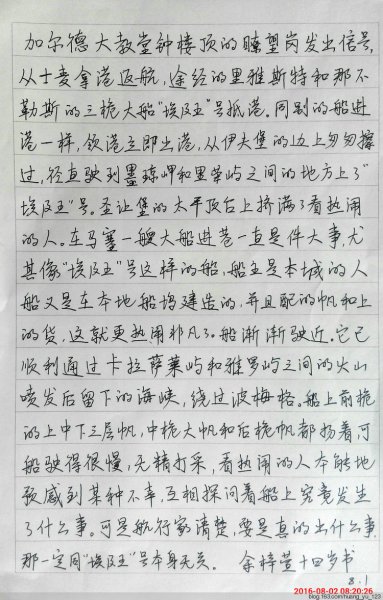 加尔德大教堂钟楼顶的瞭望岗发出信号,
从士麦拿港返航,途经的里雅斯特和那不
勒斯的三桅大船“埃及王”号抵港。同别的船进
港一样,领港立即出港,从伊夫堡的边上匆匆擦
过,径直驶到墨琼岬和里荣屿之间的地方上了“
埃及王”号。圣让堡的太平顶台上挤满了看热闹
的人。在马塞一艘大船进巷一直是件大事,尤
其像“埃及王”号这样的船,船主是本城的人
船又是在本地船坞建造的,并且配的帆和上
的货,这就更热闹非凡了。船渐渐驶近。它已
顺利通过卡拉萨莱屿和雅罗屿之间的火山
喷发后留下的海峡,绕过波梅格。船上前桅
的上中下三层帆,中桅大帆和后桅帆都扬着,可
船驶得很慢,无精打采,看热闹的人本能地
预感到某种不幸,互相探问着船上究竟发生
了什么事。可是航行家清楚,要是真的出什么事,
那一定同“埃及王”号本身无关。 余梓萱十四岁书
8.1
2016-08-02 08:20:26
blog.163.com/huang_yu_123